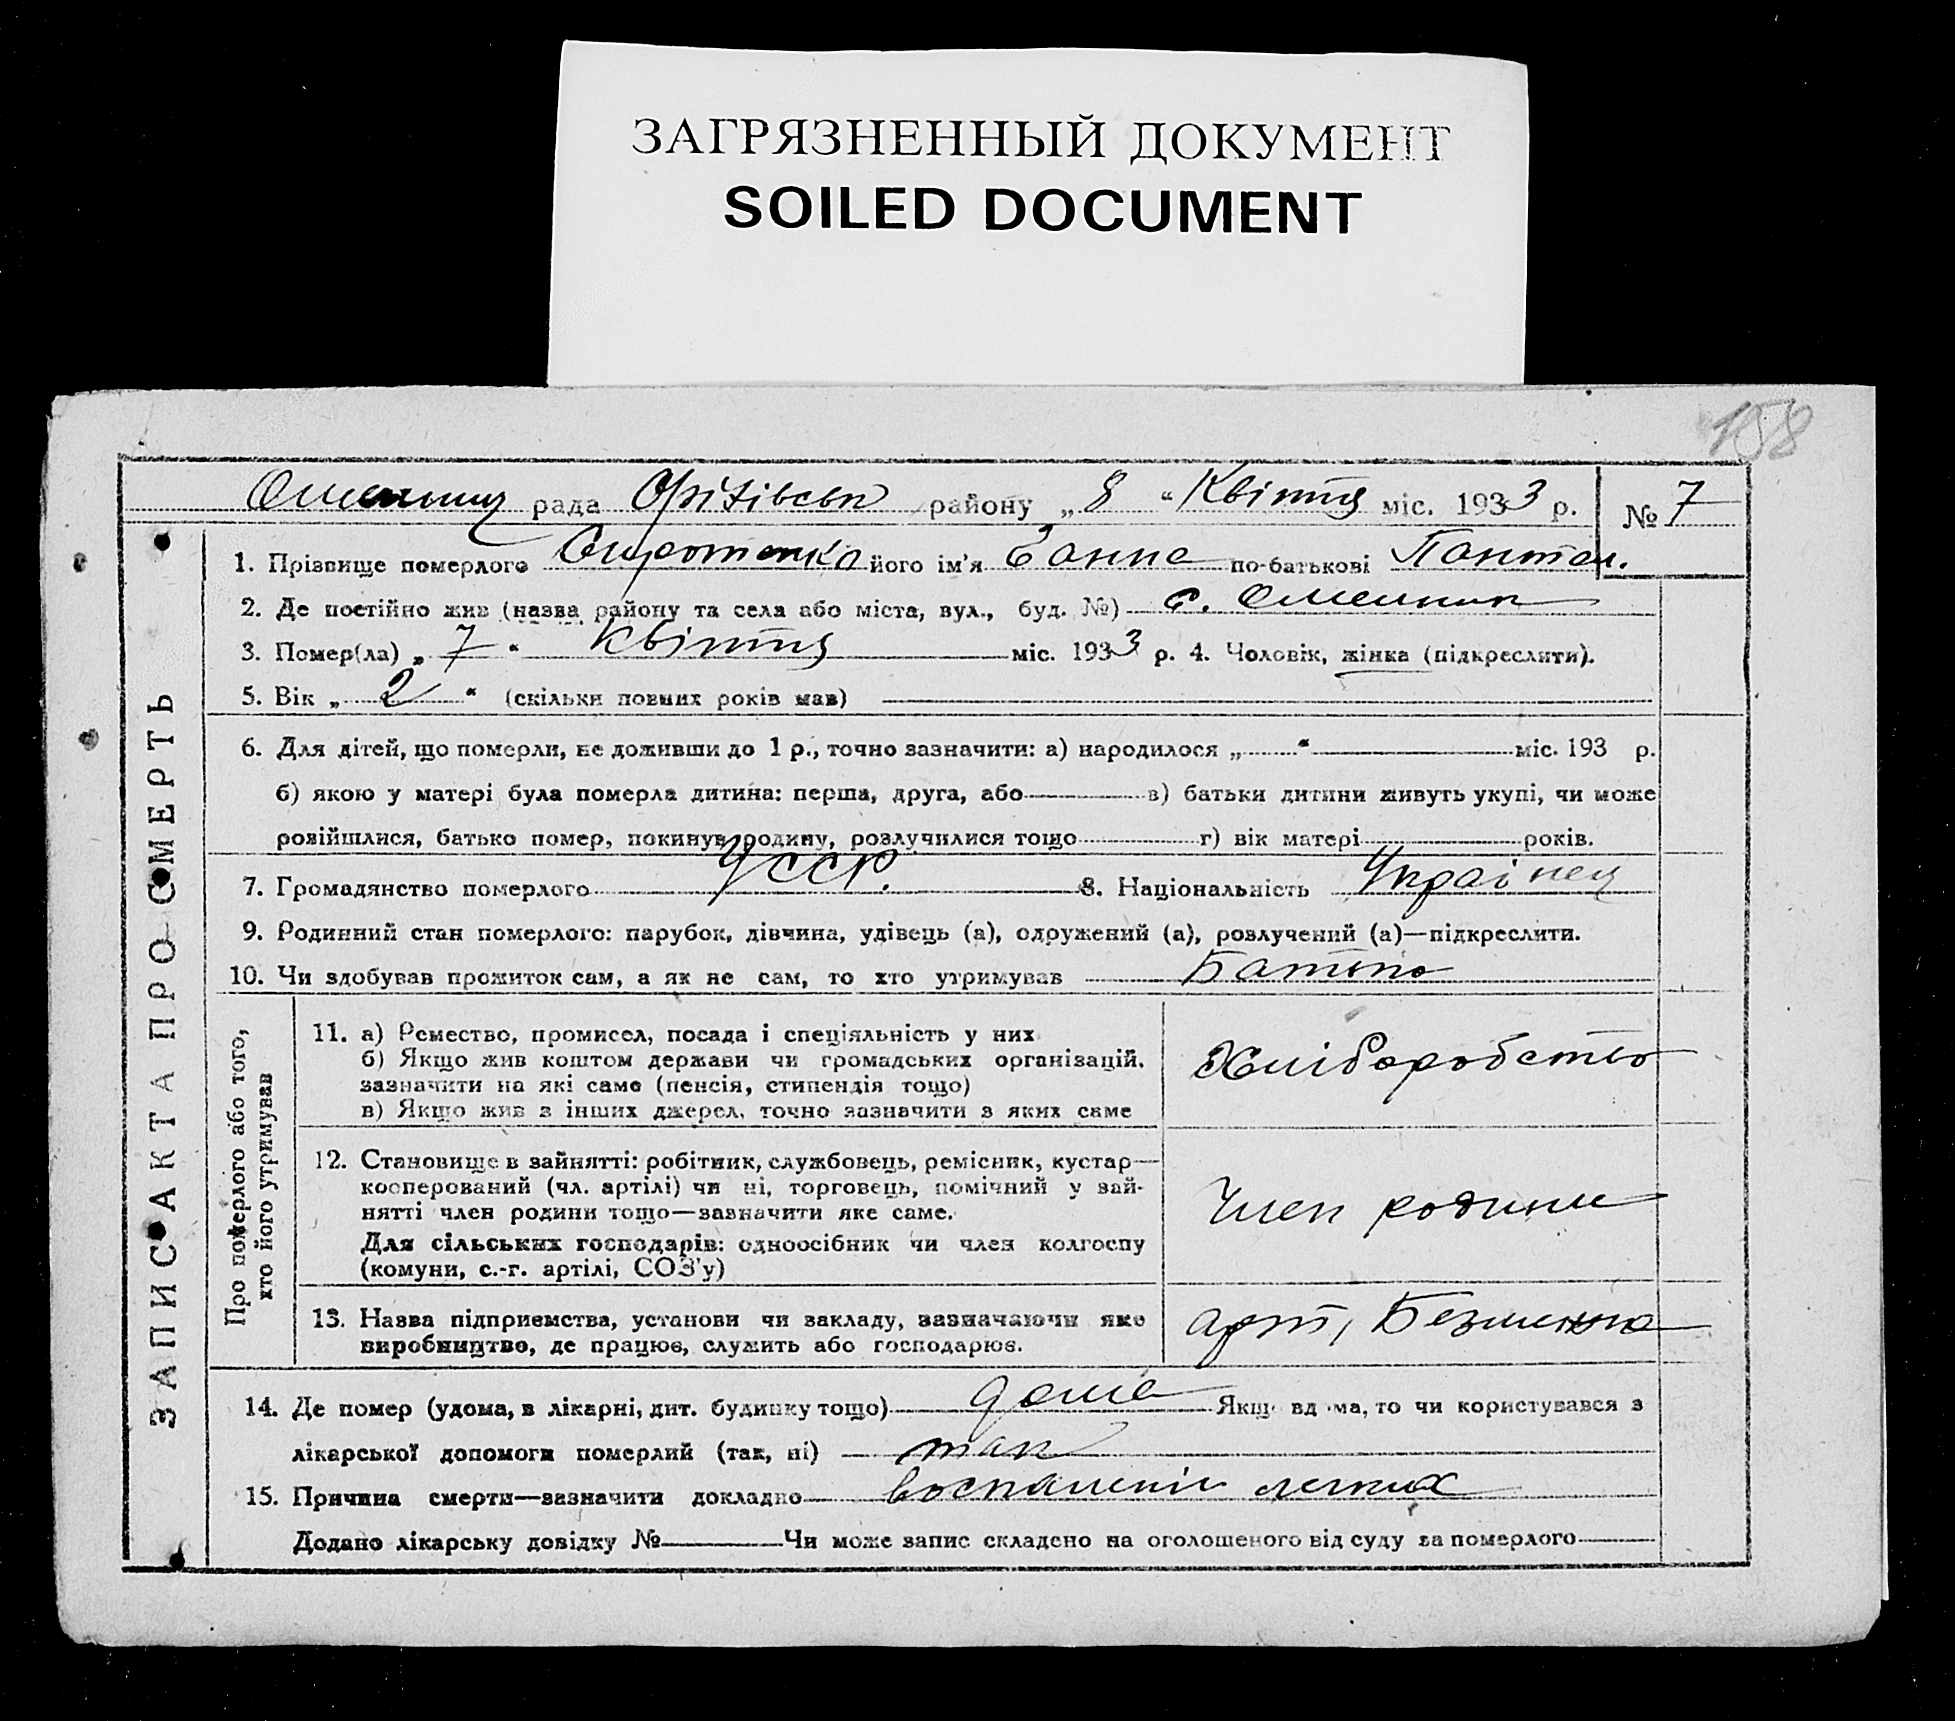 ЗАГРЯЗНЕННЫЙ ДОКУМЕНТ
SOILED DOCUMENT
158
рада району „ 8 “ Квітня міс. 1933 р. № 7
ЗАПИС АКТА ПРО СМЕРТЬ
1. Прізвище померлого Сиротенко його ім'я Ганна по-батькові Пантел.
2. Де постійно жив (назва району та села або міста, вул., буд. №) с. Омельник
3. Помер(ла) „ 7 “ Квітня міс. 1933 р. 4. Чоловік, жінка (підкреслити).
5. Вік „ 2 “ (скільки повних років мав)
6. Для дітей, що померли, не доживши до 1 р., точно зазначити: а) народилося „ “ міс. 193 р.
б) якою у матері була померла дитина: перша, друга, або в) батьки дитини живуть укупі, чи може
розійшлися, батько помер, покинув родину, розлучилися тощо г) вік матері років.
7. Громадянство померлого УССР. 8. Національність Украінец
9. Родинний стан померлого: парубок, дівчина, удівець (а), одружений (а), розлучений (а)—підкреслити.
10. Чи здобував прожиток сам, а як не сам, то хто утримував Батько
Про померлого або того,
хто його утримував
11. а) Ремество, промисел, посада і спеціяльність у них
б) Якщо жив коштом держави чи громадських організацій,
зазначити на які саме (пенсія, стипендія тощо)
в) Якщо жив з інших джерел, точно зазначити з яких саме
Хліборобство
12. Становище в зайнятті: робітник, службовець, ремісник, кустар—
кооперований (чл. артілі) чи ні, торговець, помічний у зай-
нятті член родини тощо—зазначити яке саме.
Для сільських господарів: одноосібник чи член колгоспу
(комуни, с.-г. артілі, СОЗ'у)
Член родини
13. Назва підприємства, установи чи закладу, зазначаючи яке
виробництво, де працює, служить або господарює.
арт,
14. Де помер (удома, в лікарні, дит. будинку тощо) дома Якщо вдома, то чи користувався з
лікарської допомоги померлий (так, ні) так
15. Причина смерти—зазначити докладно воспаленіе легких
Додано лікарську довідку № Чи може запис складено на оголошеного від суду за померлого